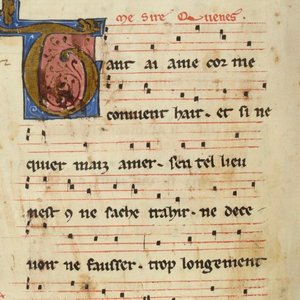 me sire Quenes.
Tant ai ame cor me
conuient hair. et si ne
quier maiz amer. sen tel lieu
nest 9 ne sache trahir. ne dece
uoir ne fausser. trop longement